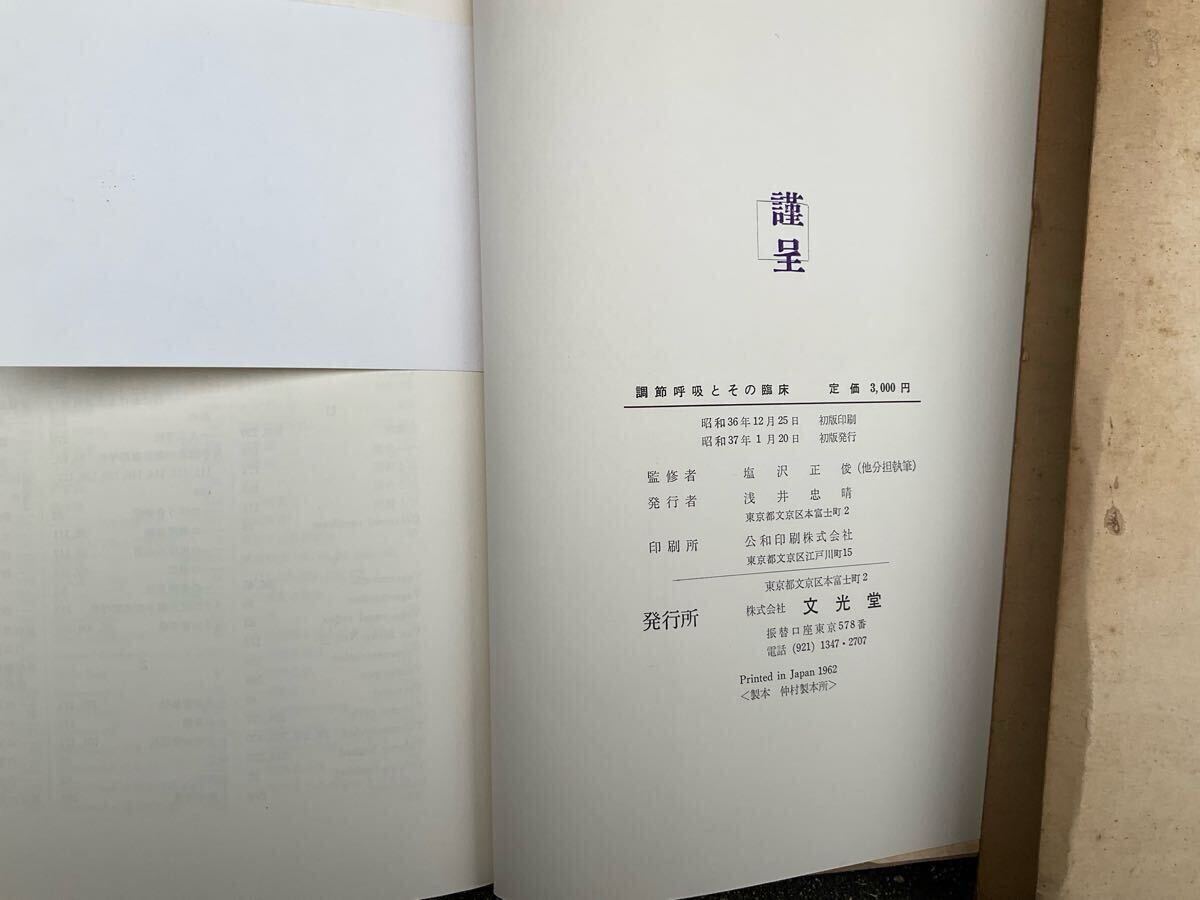 謹呈
調節呼吸とその臨床 定価 3,000円
昭和36年12月25日 初版印刷
昭和37年1月20日 初版発行
監修者 塩沢正俊(他分担執筆)
発行者 浅井忠晴
東京都文京区本富士町2
印刷所 公和印刷株式会社
東京都文京区江戸川町15
東京都文京区本富士町2
発行所 株式会社 文光堂
振替口座東京578番
電話 (921) 1347・2707
Printed in Japan 1962
<製本 仲村製本所>